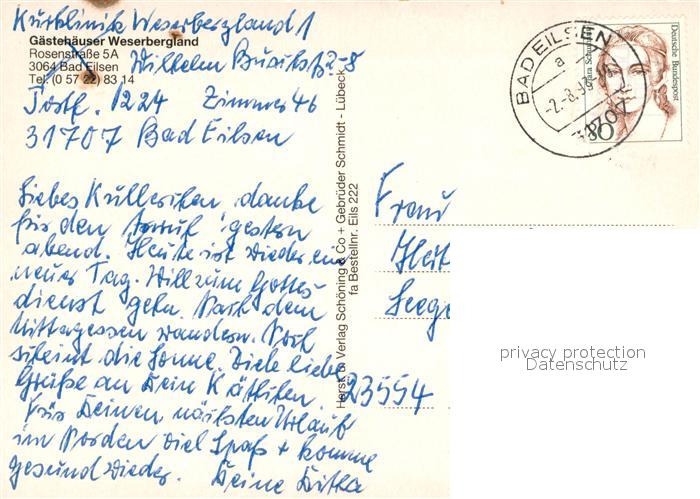 Kurklinik Weserbergland 1
Gästehäuser Weserbergland
Rosenstraße 5A
3064 Bad Eilsen
Tel. (0 57 22) 83 14
Wilhelm Buschstr. 2-8
Postf. 1224 Zimmer 46
31707 Bad Eilsen
Liebes Kullerchen danke
für den Anruf gestern
abend. Heute ist wieder ein
neuer Tag. Will zum Gottes-
dienst gehn. Nach dem
Mittagessen wandern. Noch
scheint die Sonne. Viele liebe
Grüße an Dein Käthchen.
Für Deinen nächsten Urlaub
im Norden viel Spaß + komme
gesund wieder. Deine
Verlag Schöning & Co + Gebrüder Schmidt - Lübeck
Bestellnr. Eils 222
BAD EILSEN
a
-2.-8.
31707
Deutsche Bundespost
80
Frau
23554
privacy protection
Datenschutz